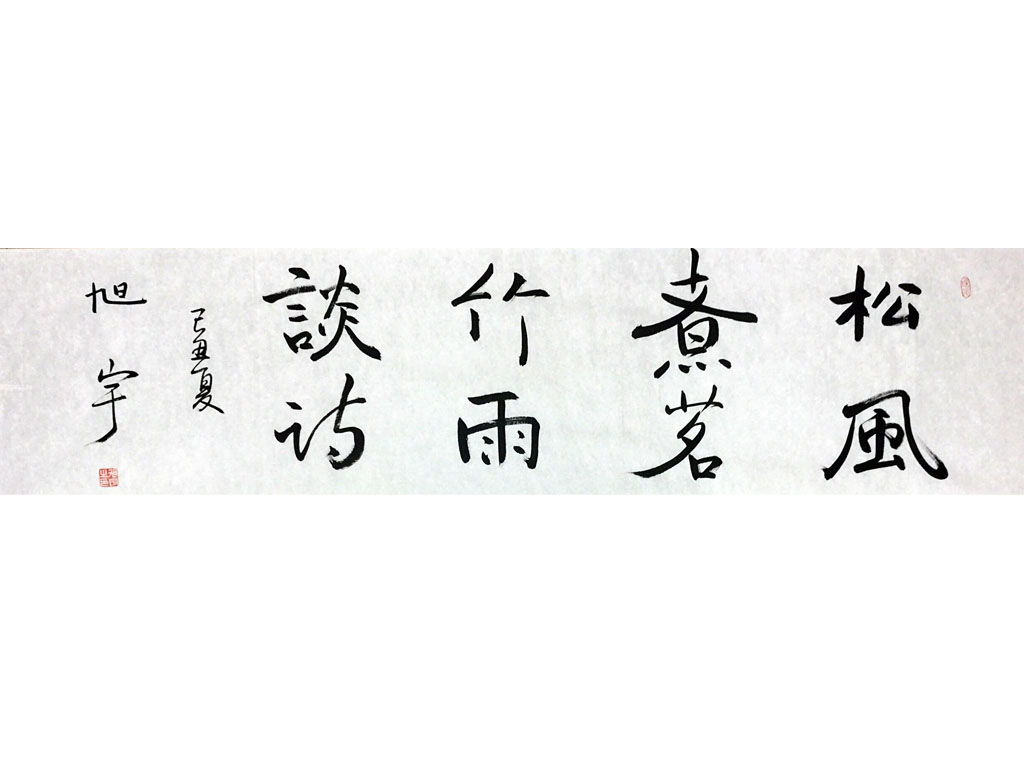 松風
煮茗
竹雨
談詩
己丑夏
旭宇